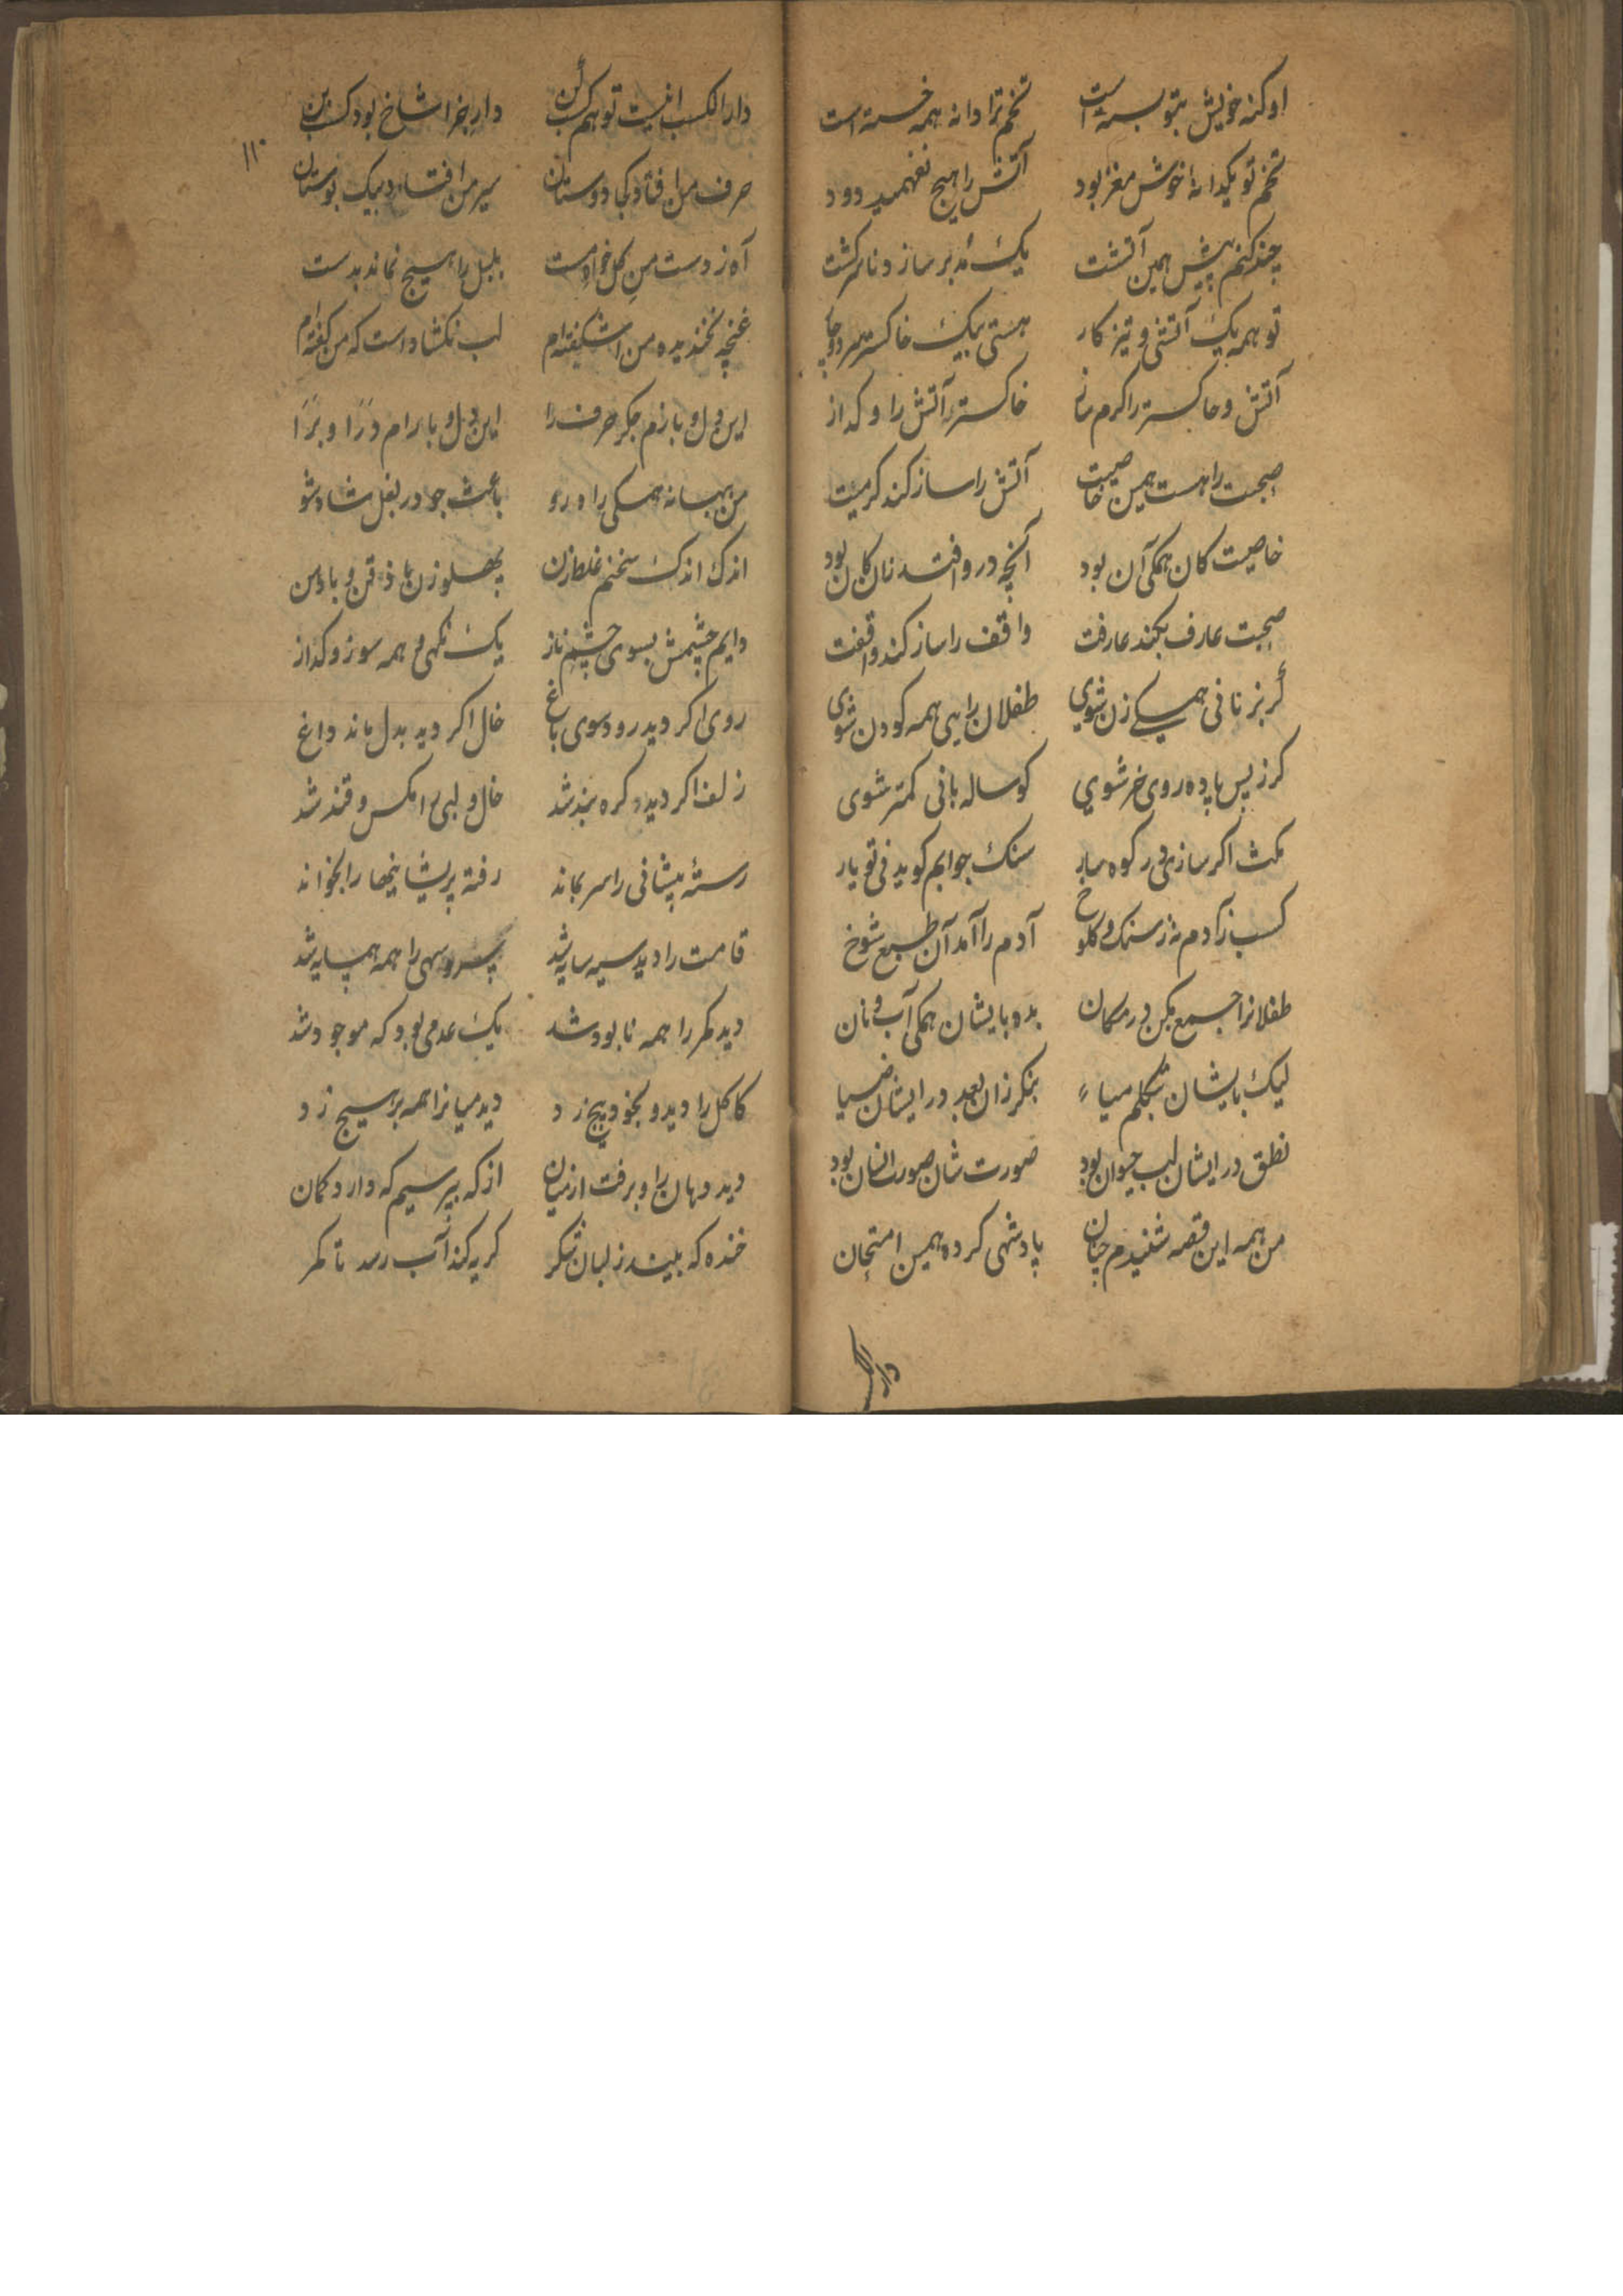 او کنه خویش بتو بسته است تخم ترا دانه همه خسته است
تخم تو یکدانهٔ خوش مغز بود آتش را هیچ نفهمید دود
چند کنم پیش همین آتشت یک مدبر ساز و نا سرکشت
تو همه یک آتشی و تیز کار هستی یک خاکستر
آتش و خاکستر را کرم ساز خاکستر آتش را و کداز
صحبت را هست همین خاصیت آتش را ساز کند کرمیت
خاصیت کان همکی آن بود آنچه درو افتد زان کان بود
صحبت عارف بکند عارفت واقف را ساز کند واقفت
گر بزنانی همکی زن شوی طفلان را یی همه کودن شوی
کر ز پس پاده روی خر شوی کوساله بانی کمتر شوی
مکث اکر سازی در کوهسار سنک جوابم کوید نی تو یار
کسب ز آدم نه ز سنک و کلوخ آدم را آمد آن طبع شوخ
طفلانرا جمع بکن در مکان بده بایشان همکی آب و نان
لیک بایشان بتکلم میاء بنکر زان بعد در ایشان ضیا
نطق در ایشان لب حیوان بود صورت شان صورت انسان بود
من همه این قصه شنیدم چنان پادشهی کرده همین امتحان
دار الکسب
١١٠
دار الکسب است تو هم کسب کن دار جزا شاخ بود کسب بن
حرف من افتاد کجا دوستان سیر من افتاد بیک بوستان
آه ز دست من کل خواه مست بلبل را هیچ نماند بدست
غنچه نخندیده من اشکفته‌ام لب نکشاد است که من کفته‌ام
این دل و بازم جکر حرف را این دل و بارام درا و برا
من ببهانه همکی راه رو باعث جو در بغل شاه شو
اندک اندک سخنم غلط زن پهلو زن با ذقن و با دهن
دایم چشمش بسوی چشم ناز یک نکهی و همه سوز و کداز
روی اکر دید رود سوی باغ خال اکر دید بدل ماند داغ
زلف اکر دید کره بند شد خال و لبی را مکس و قند شد
رستهٔ پیشانی را سر بماند رفته پریشانیها را بخواند
قامت را دید سیه سایه شد سرو سهی را همه همسایه شد
دید کمر را همه نابود شد یک عدمی بود که موجود شد
کاکل را دید و بخود پیچ زد دید میانرا همه بر هیچ زد
دید دهان را و برفت از میان از که بپرسیم که دارد کمان
خنده که بیند ز لبان شکر کریه کند آب رسد تا کمر